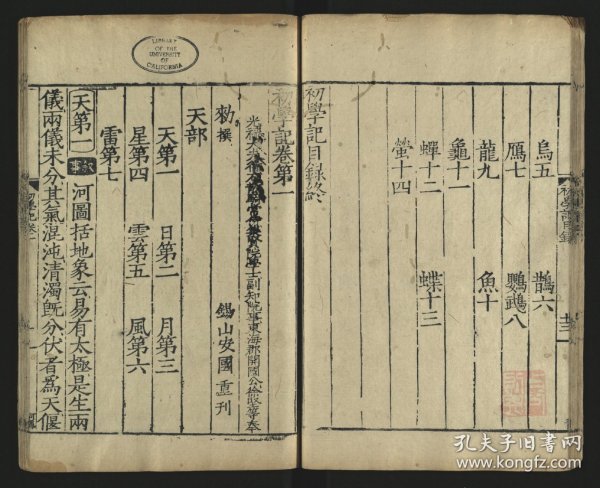 烏五 鵲六
鴈七 鸚鵡八
龍九 魚十
龜十一
蟬十二 蝶十三
螢十四
初學記目錄終
初學記目錄
初學記卷第一
光祿大夫行右散騎常侍集賢院學士副知院事東海郡開國公徐堅等奉
勑撰 錫山安國重刊
天部
天第一 日第二 月第三
星第四 雲第五 風第六
雷第七
天第一 叙事 河圖括地象云易有太極是生兩
儀兩儀未分其氣混沌清濁旣分伏者為天偃
LIBRARY
OF THE
UNIVERSITY
OF
CALIFORNIA
孔夫子旧书网
www.kongfz.com